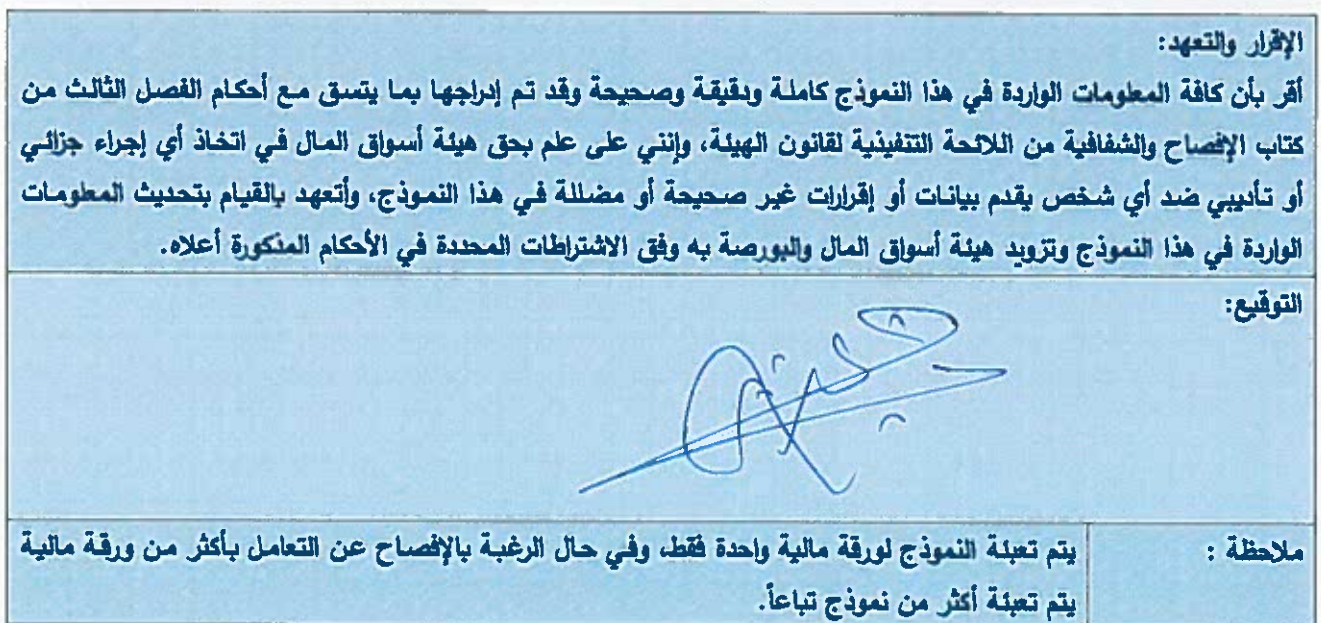 الإقرار والتعهد:
أقر بأن كافة المعلومات الواردة في هذا النموذج كاملة ودقيقة وصحيحة وقد تم إدراجها بما يتسق مع أحكام الفصل الثالث من
كتاب الإفصاح والشفافية من اللائحة التنفيذية لقانون الهيئة، وإنني على علم بحق هيئة أسواق المال في اتخاذ أي إجراء جزائي
أو تأديبي ضد أي شخص يقدم بيانات أو إقرارات غير صحيحة أو مضللة في هذا النموذج، وأتعهد بالقيام بتحديث المعلومات
الواردة في هذا النموذج وتزويد هيئة أسواق المال والبورصة به وفق الاشتراطات المحددة في الأحكام المذكورة أعلاه.
التوقيع:
ملاحظة :
يتم تعبئة النموذج لورقة مالية واحدة فقط، وفي حال الرغبة بالإفصاح عن التعامل بأكثر من ورقة مالية
يتم تعبئة أكثر من نموذج تباعاً.